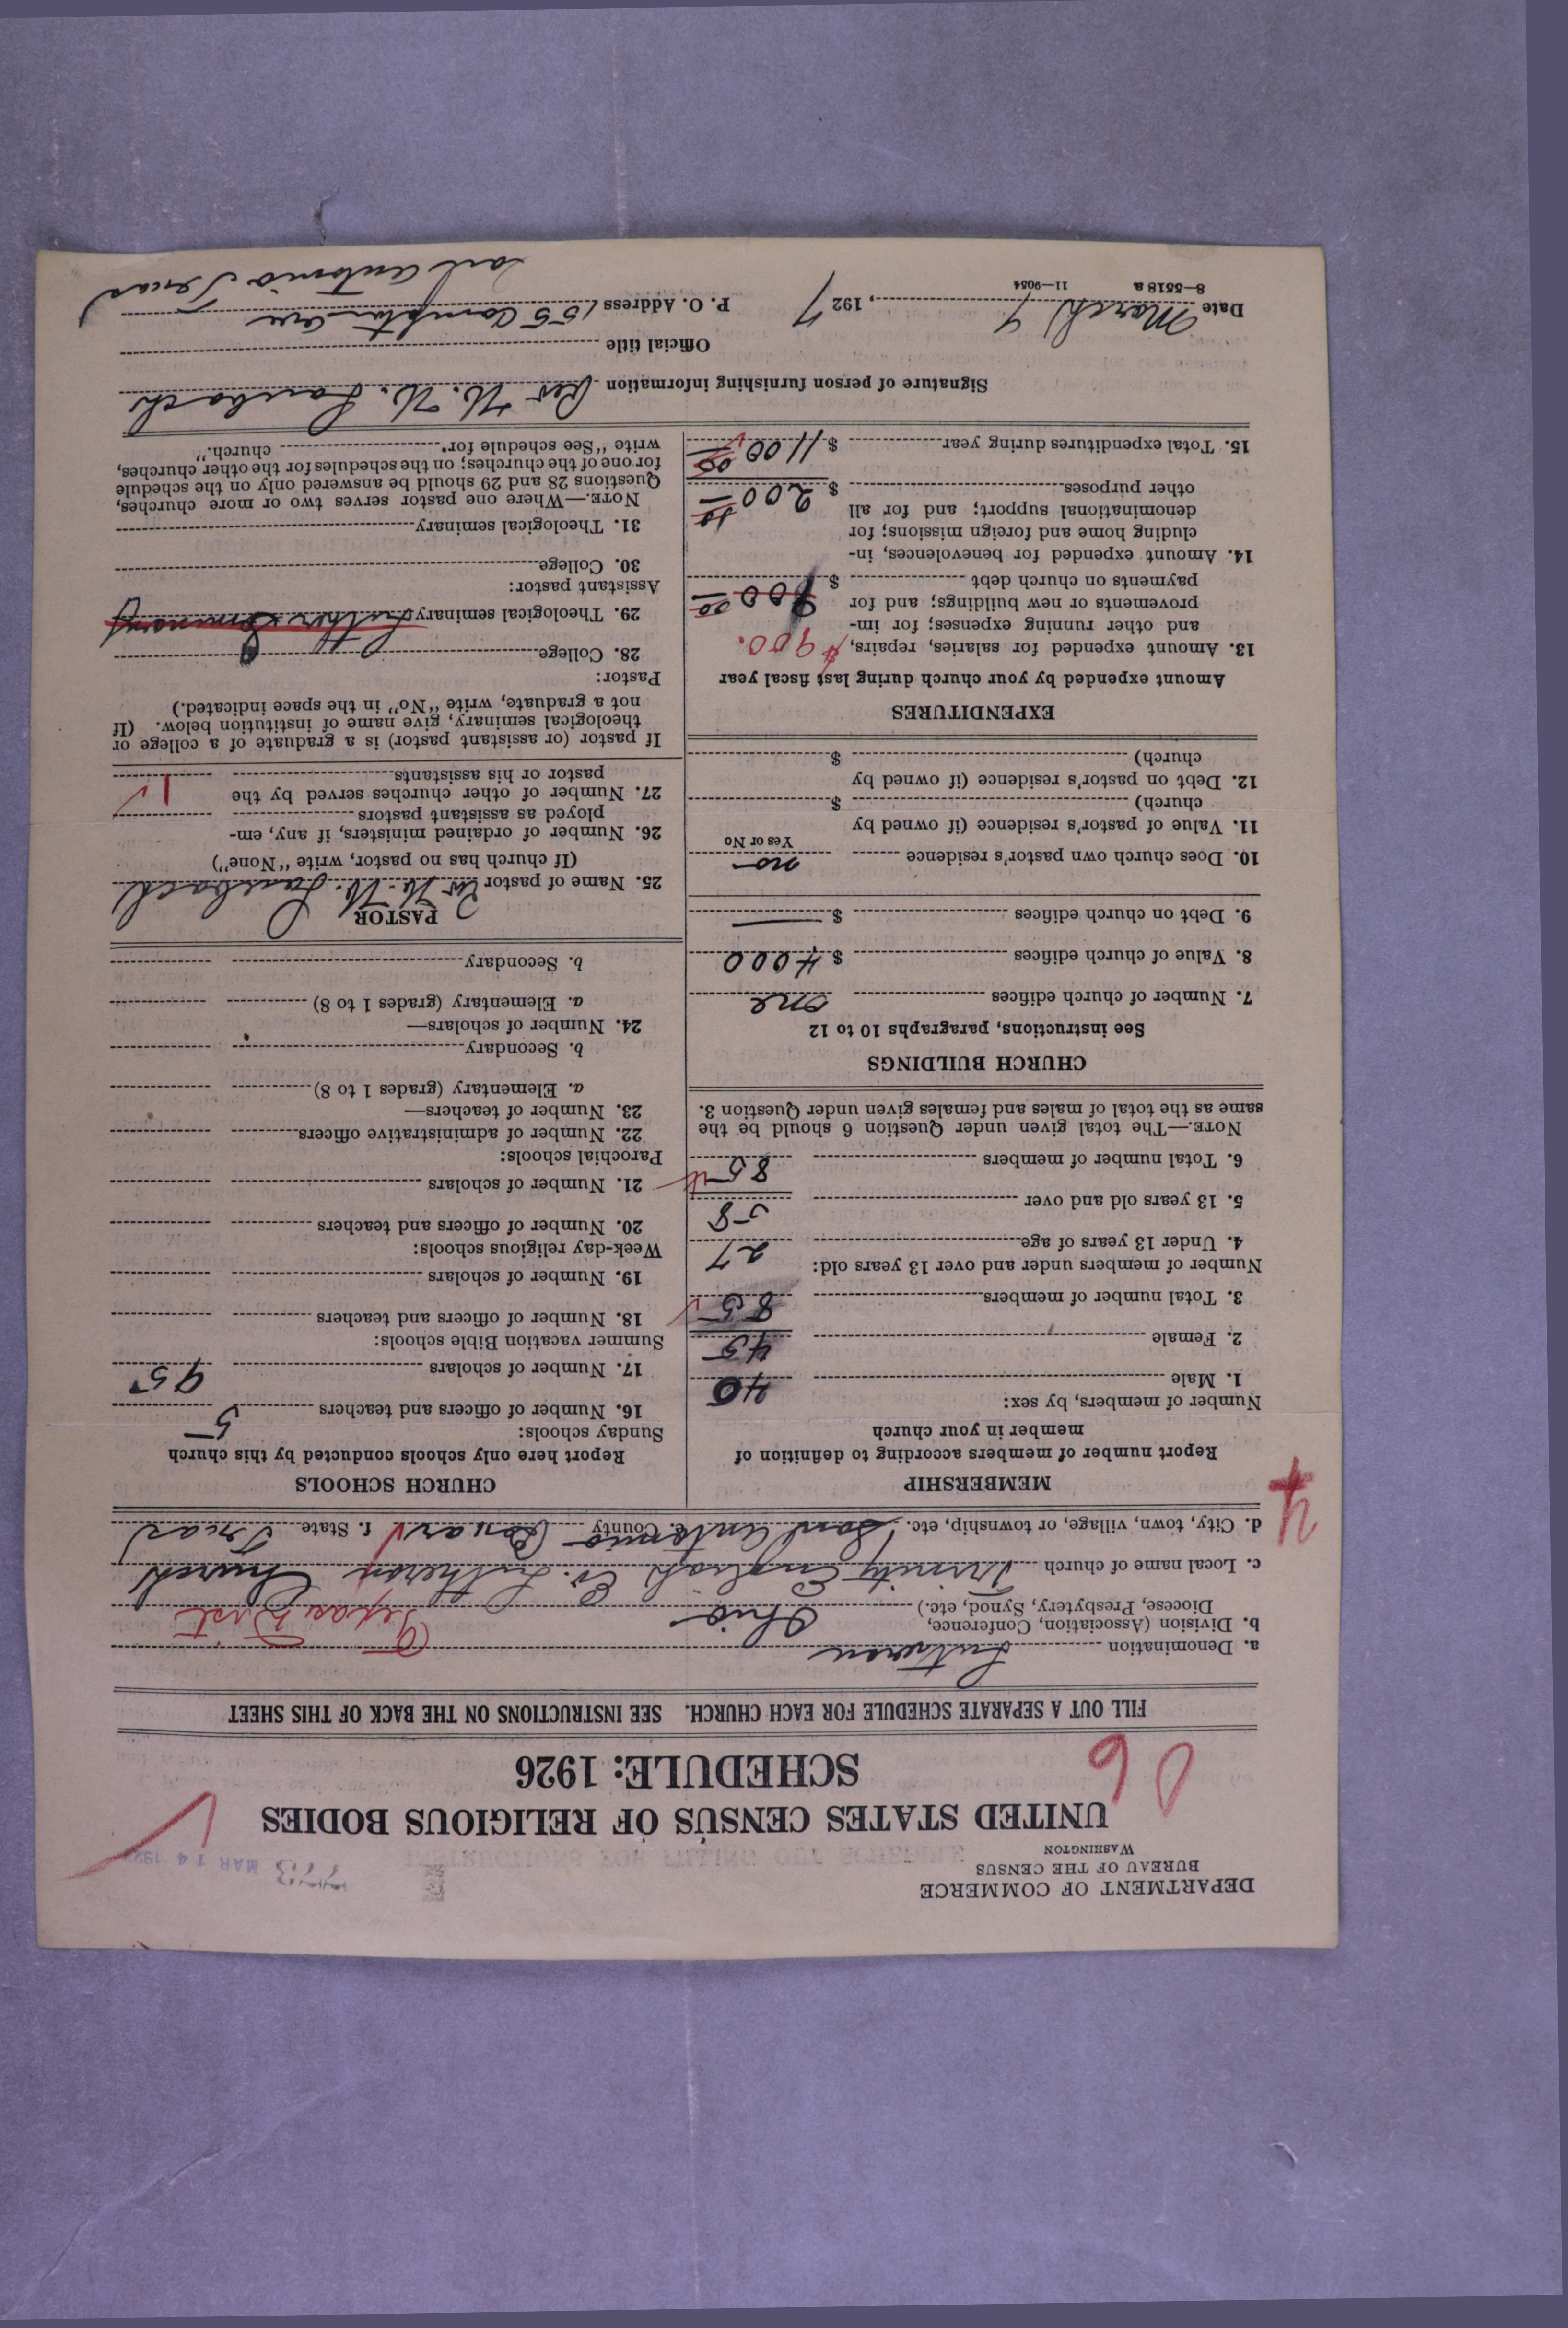 DEPARTMENT OF COMMERCE
BUREAU OF THE CENSUS
WASHINGTON
MAR 14 192
UNITED STATES CENSUS OF RELIGIOUS BODIES
SCHEDULE: 1926
06
FILL OUT A SEPARATE SCHEDULE FOR EACH CHURCH. SEE INSTRUCTIONS ON THE BACK OF THIS SHEET
a. Denomination Lutheran
b. Division (Association, Conference, Diocese, Presbytery, Synod, etc.) Ohio Texas Dist
c. Local name of church Trinity English Ev. Lutheran Church
d. City, town, village, or township, etc. San Antonio e. County Bexar f. State Texas
4
MEMBERSHIP
Report number of members according to definition of
member in your church
Number of members, by sex:
1. Male 40
2. Female 45
3. Total number of members 85
Number of members under and over 13 years old:
4. Under 13 years of age 27
5. 13 years old and over 58
6. Total number of members 85
NOTE.—The total given under Question 6 should be the
same as the total of males and females given under Question 3.
CHURCH BUILDINGS
See instructions, paragraphs 10 to 12
7. Number of church edifices one
8. Value of church edifices $ 4000
9. Debt on church edifices $ —
10. Does church own pastor's residence no
Yes or No
11. Value of pastor's residence (if owned by
church) $
12. Debt on pastor's residence (if owned by
church) $
EXPENDITURES
Amount expended by your church during last fiscal year
13. Amount expended for salaries, repairs, $900.
and other running expenses; for im-
provements or new buildings; and for
payments on church debt $ 900 00
14. Amount expended for benevolences, in-
cluding home and foreign missions; for
denominational support; and for all
other purposes $ 200
15. Total expenditures during year $ 1100 00
CHURCH SCHOOLS
Report here only schools conducted by this church
Sunday schools:
16. Number of officers and teachers 5
17. Number of scholars 95
Summer vacation Bible schools:
18. Number of officers and teachers
19. Number of scholars
Week-day religious schools:
20. Number of officers and teachers
21. Number of scholars
Parochial schools:
22. Number of administrative officers
23. Number of teachers—
a. Elementary (grades 1 to 8)
b. Secondary
24. Number of scholars—
a. Elementary (grades 1 to 8)
b. Secondary
PASTOR
25. Name of pastor Rev.
(If church has no pastor, write "None")
26. Number of ordained ministers, if any, em-
ployed as assistant pastors
27. Number of other churches served by the
pastor or his assistants 1
If pastor (or assistant pastor) is a graduate of a college or
theological seminary, give name of institution below. (If
not a graduate, write "No" in the space indicated.)
Pastor:
28. College
29. Theological seminary Luther Seminary
Assistant pastor:
30. College
31. Theological seminary
NOTE.—Where one pastor serves two or more churches,
Questions 28 and 29 should be answered only on the schedule
for one of the churches; on the schedules for the other churches,
write "See schedule for church."
Signature of person furnishing information Rev
Official title
Date March 9, 1927 P. O. Address 155 Compton Ave
San Antonio Texas
8—5518 a 11—9054